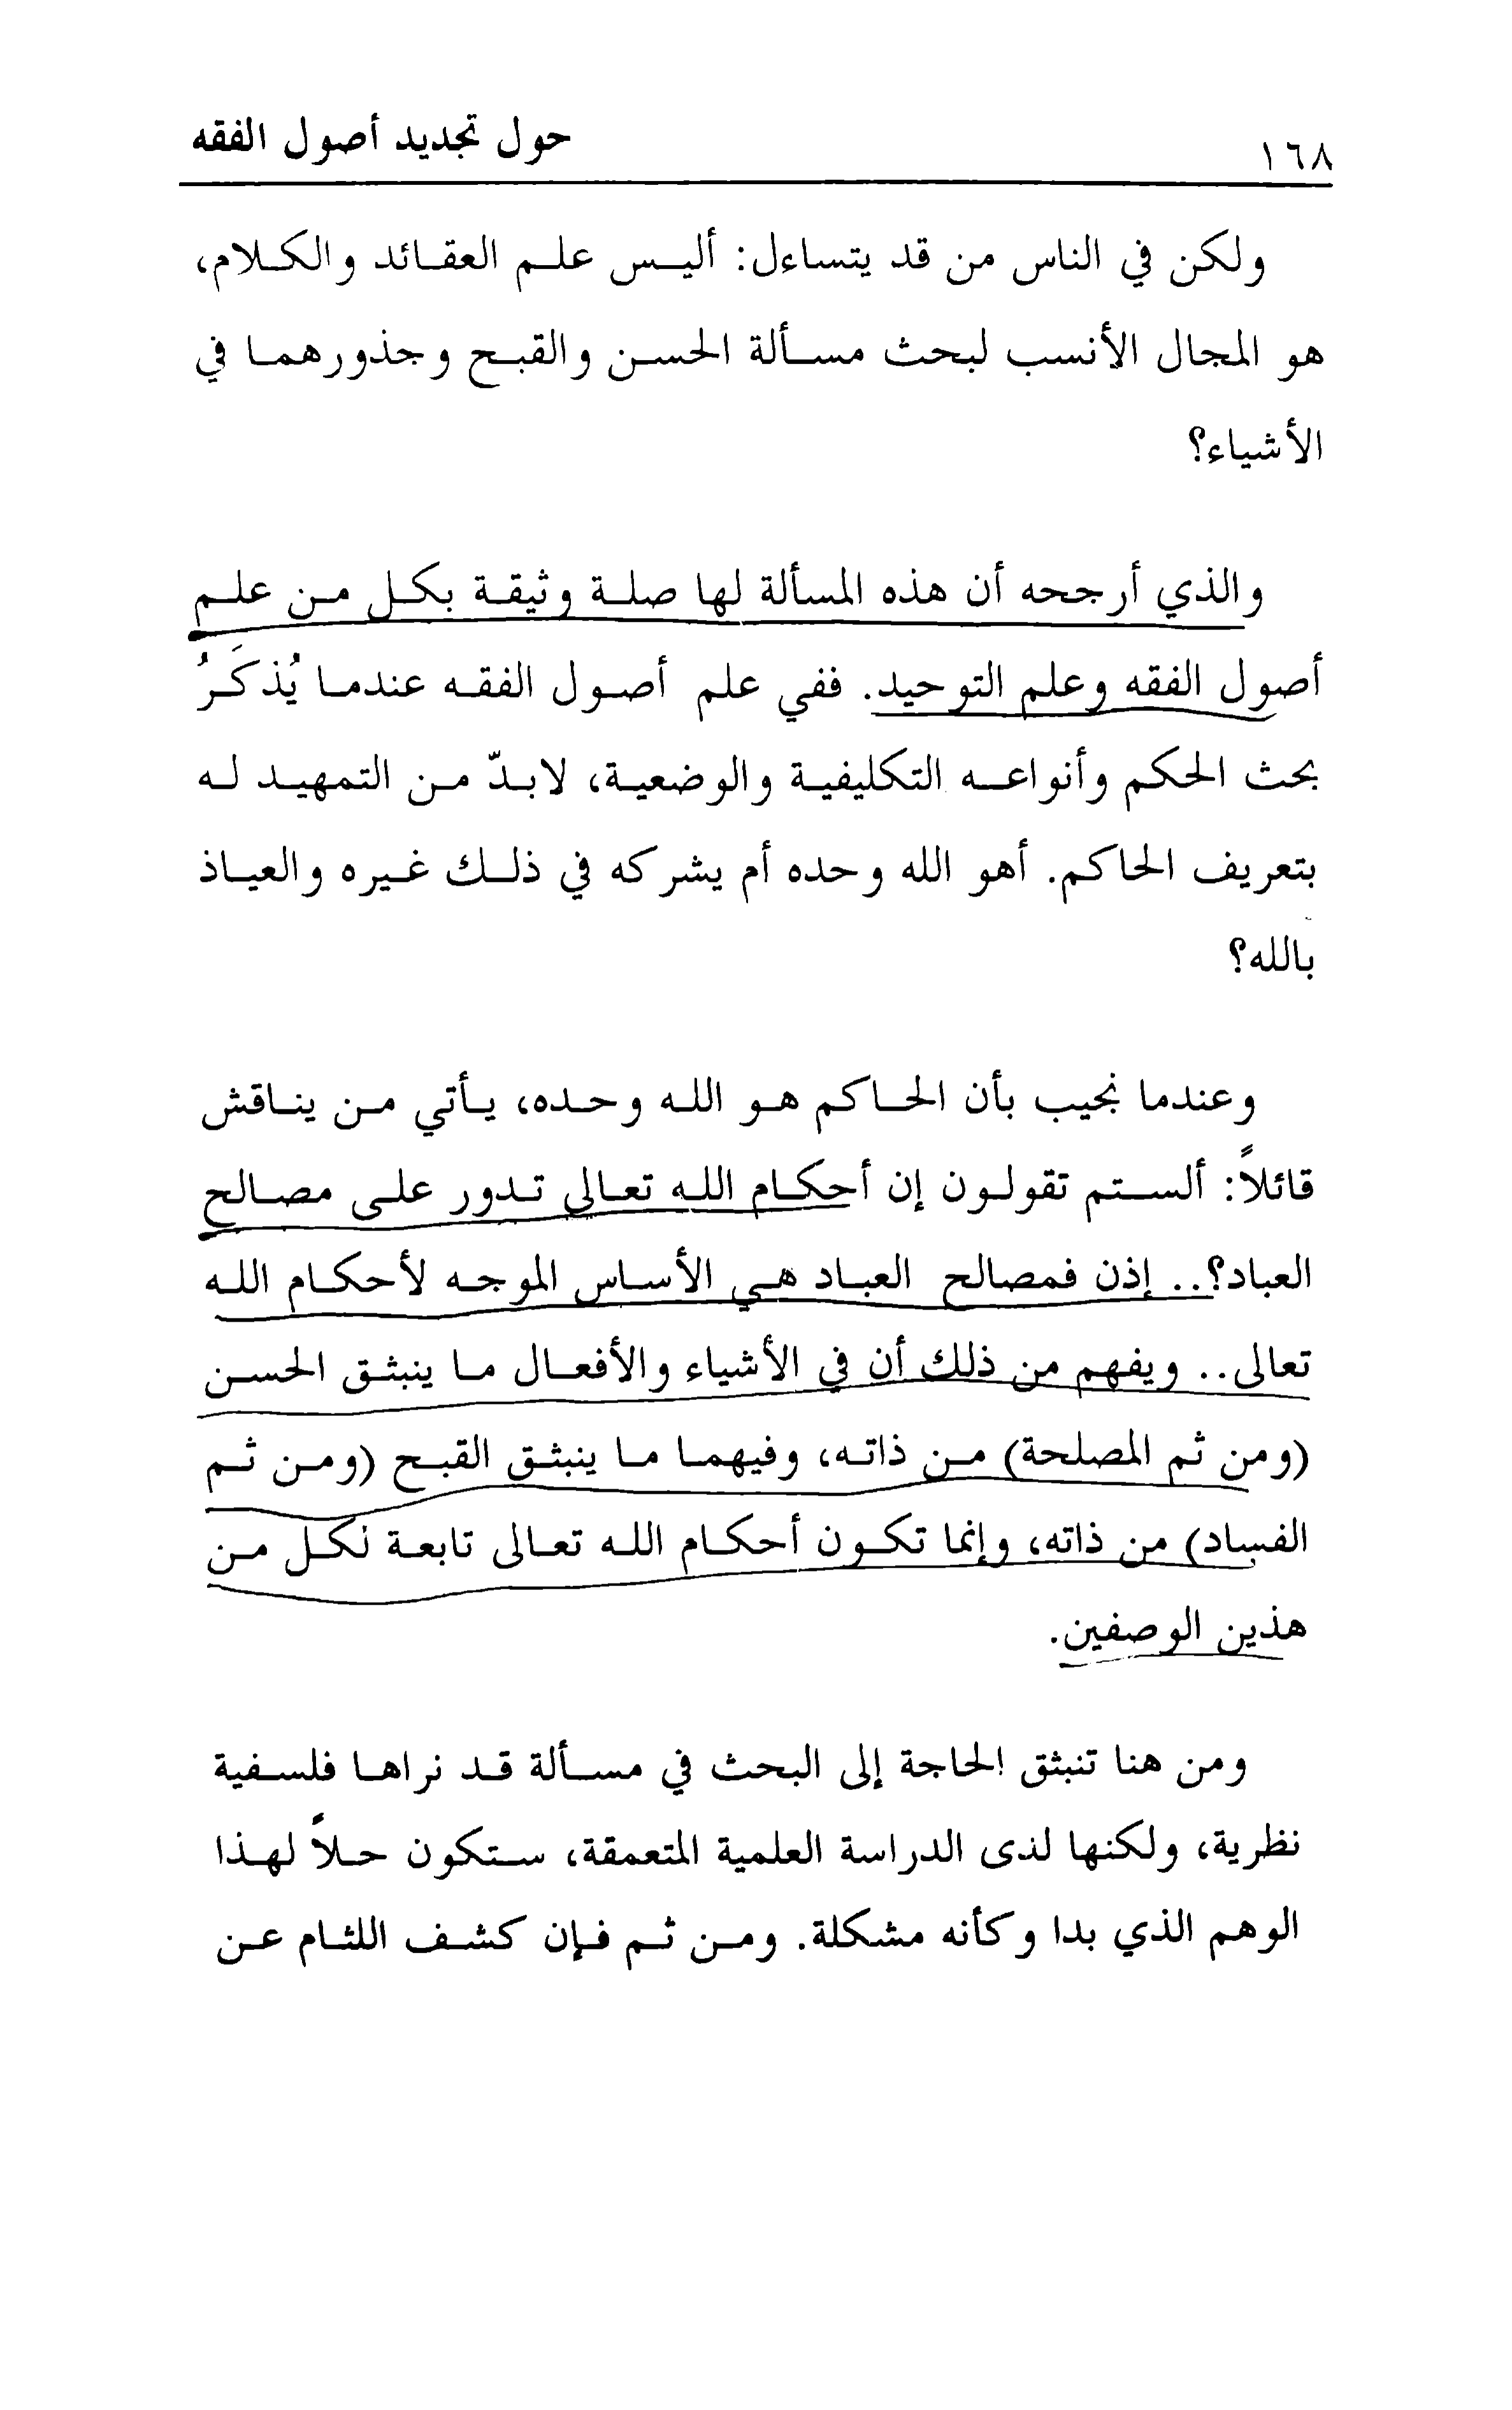 ١٦٨
حول تجديد أصول الفقه
ولكن في الناس من قد يتساءل: أليس علم العقائد والكلام،
هو المجال الأنسب لبحث مسألة الحسن والقبح وجذورهما في
الأشياء؟
والذي أرجحه أن هذه المسألة لها صلة وثيقة بكل من علم
أصول الفقه وعلم التوحيد. ففي علم أصول الفقه عندما يُذكَرُ
بحث الحكم وأنواعه التكليفية والوضعية، لابدّ من التمهيد له
بتعريف الحاكم. أهو الله وحده أم يشركه في ذلك غيره والعياذ
بالله؟
وعندما نجيب بأن الحاكم هو الله وحده، يأتي من يناقش
قائلاً: ألستم تقولون إن أحكام الله تعالى تدور على مصالح
العباد؟.. إذن فمصالح العباد هي الأساس الموجه لأحكام الله
تعالى.. ويفهم من ذلك أن في الأشياء والأفعال ما ينبثق الحسن
(ومن ثم المصلحة) من ذاته، وفيهما ما ينبثق القبح (ومن ثم
الفساد) من ذاته، وإنما تكون أحكام الله تعالى تابعة لكل من
هذين الوصفين.
ومن هنا تنبثق الحاجة إلى البحث في مسألة قد نراها فلسفية
نظرية، ولكنها لدى الدراسة العلمية المتعمقة، ستكون حلاً لهذا
الوهم الذي بدا وكأنه مشكلة. ومن ثم فإن كشف اللثام عن